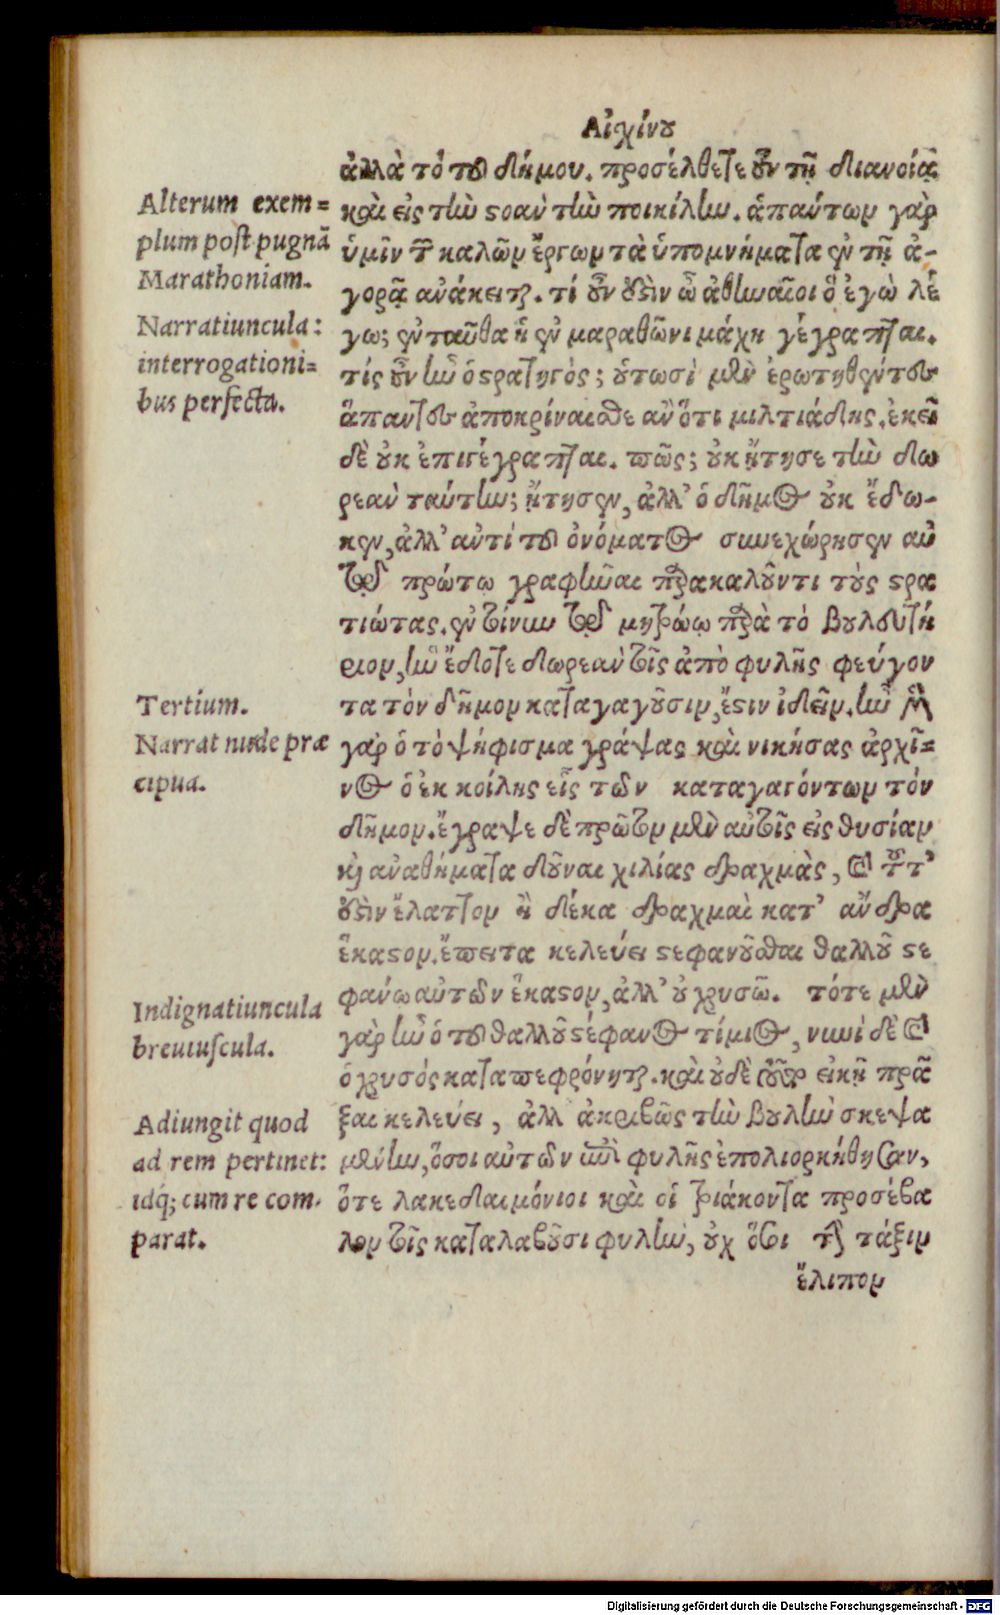 Αἰχίνου
ἀλλὰ τὸ τοῦ δήμου. προσέλθετε οὖν τῇ διανοίᾳ
καὶ εἰς τὴν στοὰν τὴν ποικίλην. ἁπάντων γὰρ
ὑμῖν τῶν καλῶν ἔργων τὰ ὑπομνήματα ἐν τῇ ἀ-
γορᾷ ἀνάκειται. τί οὖν δ᾽ἐστὶν ὦ ἀθηναῖοι ὃ ἐγὼ λέ
γω; ἐνταῦθα ἡ ἐν μαραθῶνι μάχη γέγραπται.
τίς οὖν ἦν ὁ στρατηγός; οὑτωσὶ μὲν ἐρωτηθέντες
ἅπαντες ἀποκρίναισθε ἂν ὅτι μιλτιάδης. ἐκεῖ
δὲ οὐκ ἐπιγέγραπται. πῶς; οὐκ ᾔτησε τὴν δω
ρεὰν ταύτην; ᾔτησεν, ἀλλ᾽ ὁ δῆμος οὐκ ἔδω-
κεν, ἀλλ᾽ ἀντὶ τοῦ ὀνόματος συνεχώρησεν αὐ
τῷ πρώτῳ γραφῆναι παρακαλοῦντι τοὺς στρα
τιώτας. ἐν τοίνυν τῷ μητρώῳ παρὰ τὸ βουλευτή
ριον, ἣν ἔδοτε δωρεὰν τοῖς ἀπὸ φυλῆς φεύγον
τα τὸν δῆμον καταγαγοῦσιν, ἔστιν ἰδεῖν. ἦν μὲν
γὰρ ὁ τὸ ψήφισμα γράψας καὶ νικήσας ἀρχῖ=
νος ὁ ἐκ κοίλης εἷς τῶν καταγαγόντων τὸν
δῆμον. ἔγραψε δὲ πρῶτον μὲν αὐτοῖς εἰς θυσίαν
καὶ ἀναθήματα δοῦναι χιλίας δραχμὰς, καὶ τοῦτ᾽
ἐστὶν ἔλαττον ἢ δέκα δραχμαὶ κατ᾽ ἄνδρα
ἕκαστον. ἔπειτα κελεύει στεφανοῦσθαι θαλλοῦ στε
φάνῳ αὐτῶν ἕκαστον, ἀλλ᾽ οὐ χρυσῷ. τότε μὲν
γὰρ ἦν ὁ τοῦ θαλλοῦ στέφανος τίμιος, νυνὶ δὲ καὶ
ὁ χρυσὸς καταπεφρόνηται. καὶ οὐδὲ τοῦτο εἰκῇ πρᾶ
ξαι κελεύει, ἀλλ ἀκριβῶς τὴν βουλὴν σκεψα
μένην, ὅσοι αὐτῶν ἐπὶ φυλῆς ἐπολιορκήθησαν,
ὅτε λακεδαιμόνιοι καὶ οἱ τριάκοντα προσέβα
λον τοῖς καταλαβοῦσι φυλὴν, οὐχ ὅσοι τὴν τάξιν
ἔλιπον
Alterum exem=
plum post pugnā
Marathoniam.
Narratiuncula:
interrogationi=
bus perfecta.
Tertium.
Narrat nude præ
cipua.
Indignatiuncula
breuiuscula.
Adiungit quod
ad rem pertinet:
idq; cum re com-
parat.
Digitalisierung gefördert durch die Deutsche Forschungsgemeinschaft - DFG